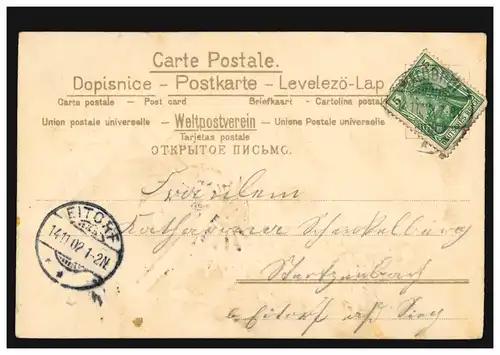 Carte Postale.
Dopisnice – Postkarte – Levelező-Lap
Carte postale – Post card Briefkaart – Cartolina postale
Union postale universelle – Weltpostverein – Unione Postale universelle
Tarjetas postale
ОТКРЫТОЕ ПИСЬМО.
5
Fräulein
Katharina Schenkelberg
EITORF
14.11.02.1-2N
b. Eitorf a/d Sieg